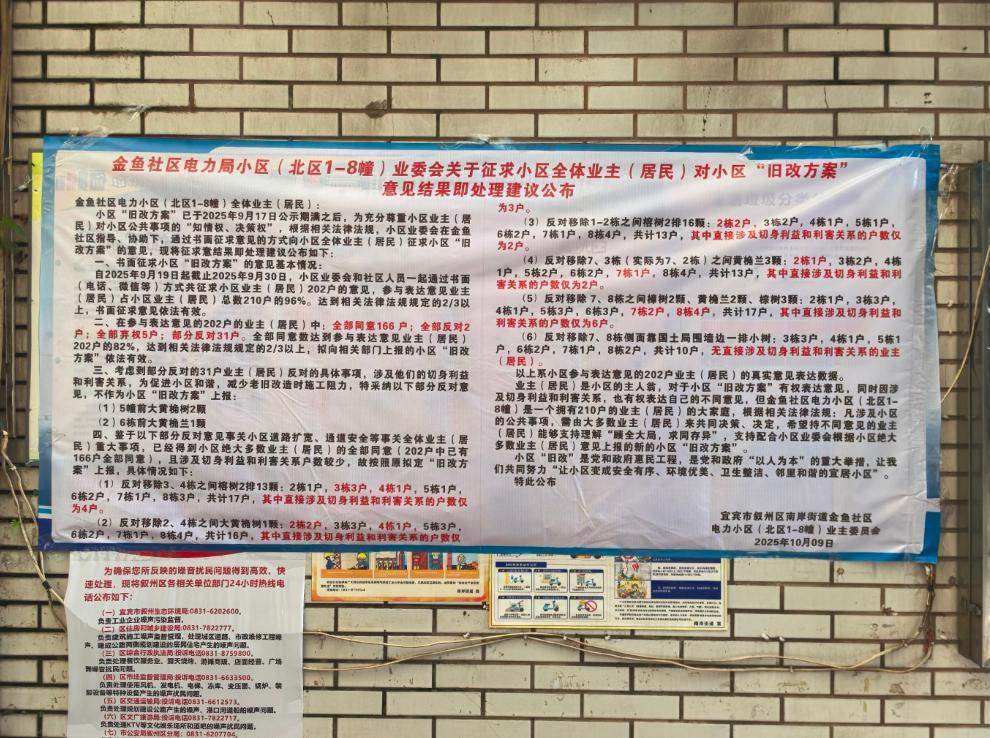 金鱼社区电力局小区（北区1-8幢）业委会关于征求小区全体业主（居民）对小区“旧改方案”
意见结果即处理建议公布
金鱼社区电力小区（北区1-8幢）全体业主（居民）：
小区“旧改方案”已于2025年9月17日公示期满之后，为充分尊重小区业主（居
民）对小区公共事项的“知情权、决策权”，根据相关法律法规，小区业委会在金鱼
社区指导、协助下，通过书面征求意见的方式向小区全体业主（居民）征求小区“旧
改方案”的意见，现将征求意结果即处理建议公布如下：
一、书面征求小区“旧改方案”的意见基本情况：
自2025年9月19日起截止2025年9月30日，小区业委会和社区人员一起通过书面
（电话、微信等）方式共征求小区业主（居民）202户的意见，参与表达意见业主
（居民）占小区业主（居民）总数210户的96%。达到相关法律法规规定的2/3以
上，书面征求意见依法有效。
二、在参与表达意见的202户的业主（居民）中：全部同意166户；全部反对2
户；全部弃权5户；部分反对31户。全部同意数达到参与表达意见业主（居民）
202户的82%，达到相关法律法规规定的2/3以上，拟向相关部门上报的小区“旧改
方案”依法有效。
三、考虑到部分反对的31户业主（居民）反对的具体事项，涉及他们的切身利益
和利害关系，为促进小区和谐，减少老旧改造时施工阻力，特采纳以下部分反对意
见，不作为小区“旧改方案”上报：
（1）5幢前大黄桷树2颗
（2）6栋前大黄桷兰1颗
四、鉴于以下部分反对意见事关小区道路扩宽、通道安全等事关全体业主（居
民）重大事项，已经得到小区绝大多数业主（居民）的全部同意（202户中已有
166户全部同意），且涉及切身利益和利害关系户数较少，故按照原拟定“旧改方
案”上报，具体情况如下：
（1）反对移除3、4栋之间榕树2排13颗：2栋1户，3栋3户，4栋1户，5栋1户，
6栋2户，7栋1户，8栋3户，共计17户，其中直接涉及切身利益和利害关系的户数仅
为4户。
（2）反对移除2、4栋之间大黄桷树1颗：2栋2户，3栋3户，4栋1户，5栋3户，
6栋2户，7栋1户，8栋4户，共计16户，其中直接涉及切身利益和利害关系的户数仅
为3户。
（3）反对移除1-2栋之间榕树2排16颗：2栋2户，3栋2户，4栋1户，5栋1户，
6栋2户，7栋1户，8栋4户，共计13户，其中直接涉及切身利益和利害关系的户数仅
为2户。
（4）反对移除7、3栋（实际为7、2栋）之间黄桷兰3颗：2栋1户，3栋2户，4栋
1户，5栋2户，6栋2户，7栋1户，8栋4户，共计13户，其中直接涉及切身利益和利
害关系的户数仅为2户。
（5）反对移除7、8栋之间樟树2颗、黄桷兰2颗、棕树3颗：2栋1户，3栋3户，
4栋1户，5栋3户，6栋3户，7栋2户，8栋4户，共计17户，其中直接涉及切身利益和
利害关系的户数仅为6户。
（6）反对移除7、8栋侧面靠国土局围墙边一排小树：3栋3户，4栋1户，5栋1
户，6栋2户，7栋1户，8栋2户，共计10户，无直接涉及切身利益和利害关系的业主
（居民）。
以上系小区参与表达意见的202户业主（居民）的真实意见表达数据。
业主（居民）是小区的主人翁，对于小区“旧改方案”有权表达意见，同时因涉
及切身利益和利害关系，也有权表达自己的不同意见，但金鱼社区电力小区（北区1-
8幢）是一个拥有210户的业主（居民）的大家庭，根据相关法律法规：凡涉及小区
的公共事项，需由大多数业主（居民）来共同决策、决定，希望持不同意见的业主
（居民）能够支持理解“顾全大局，求同存异”，支持配合小区业委会根据小区绝大
多数业主（居民）意见上报的新的小区“旧改方案”。
小区“旧改”是党和政府惠民工程，是党和政府“以人为本”的重大举措，让我
们共同努力“让小区变成安全有序、环境优美、卫生整洁、邻里和谐的宜居小区”。
特此公布
宜宾市叙州区南岸街道金鱼社区
电力小区（北区1-8幢）业主委员会
2025年10月09日
为确保您所反映的噪音扰民问题得到高效、快
速处理，现将叙州区各相关单位部门24小时热线电
话公布如下：
（一）宜宾市叙州生态环境局:0831-6202600,
负责工业企业噪声污染监督。
（二）区住房和城乡建设局:0831-7822777,
负责建筑施工噪声监督管理，处理城区道路、市政维修工程噪
声、建成公路两侧规划建设的居民住宅产生的噪声问题。
（三）区综合行政执法局:投诉电话0831-8759800,
负责处理餐饮服务业、露天烧烤、游摊商贩、店面经营、广场
舞噪音扰民问题。
（四）区市场监督管理局:投诉电话0831-6633500,
负责处理使用风机、发电机、电梯、冻库、变压器、锅炉、装
卸设备等特种设备产生的噪声扰民问题。
（五）区交通运输局:投诉电话0831-6612573,
负责处理规划建设公路产生的噪声、港口河道船舶噪声问题。
（六）区文广旅游局:投诉电话0831-7822717,
负责处理KTV等文化娱乐场所和酒吧的噪声扰民问题。
（七）市公安局叙州区分局:0831-6207704,